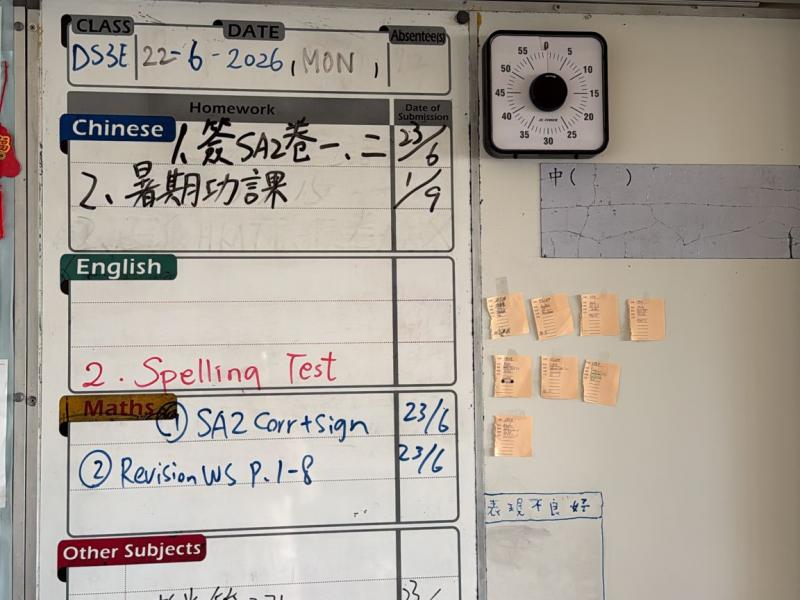 CLASS DATE Absentee(s)
DS3E 22-6-2026, MON,
Homework Date of Submission
Chinese
1、簽SA2卷一、二 23/6
2、暑期功課 1/9
English
2. Spelling Test
Maths
① SA2 Corr+sign 23/6
② Revision WS P.1-8 23/6
Other Subjects
23/
55 0 5
50 10
45 15
40 20
35 30 25
中( )
表現不良好